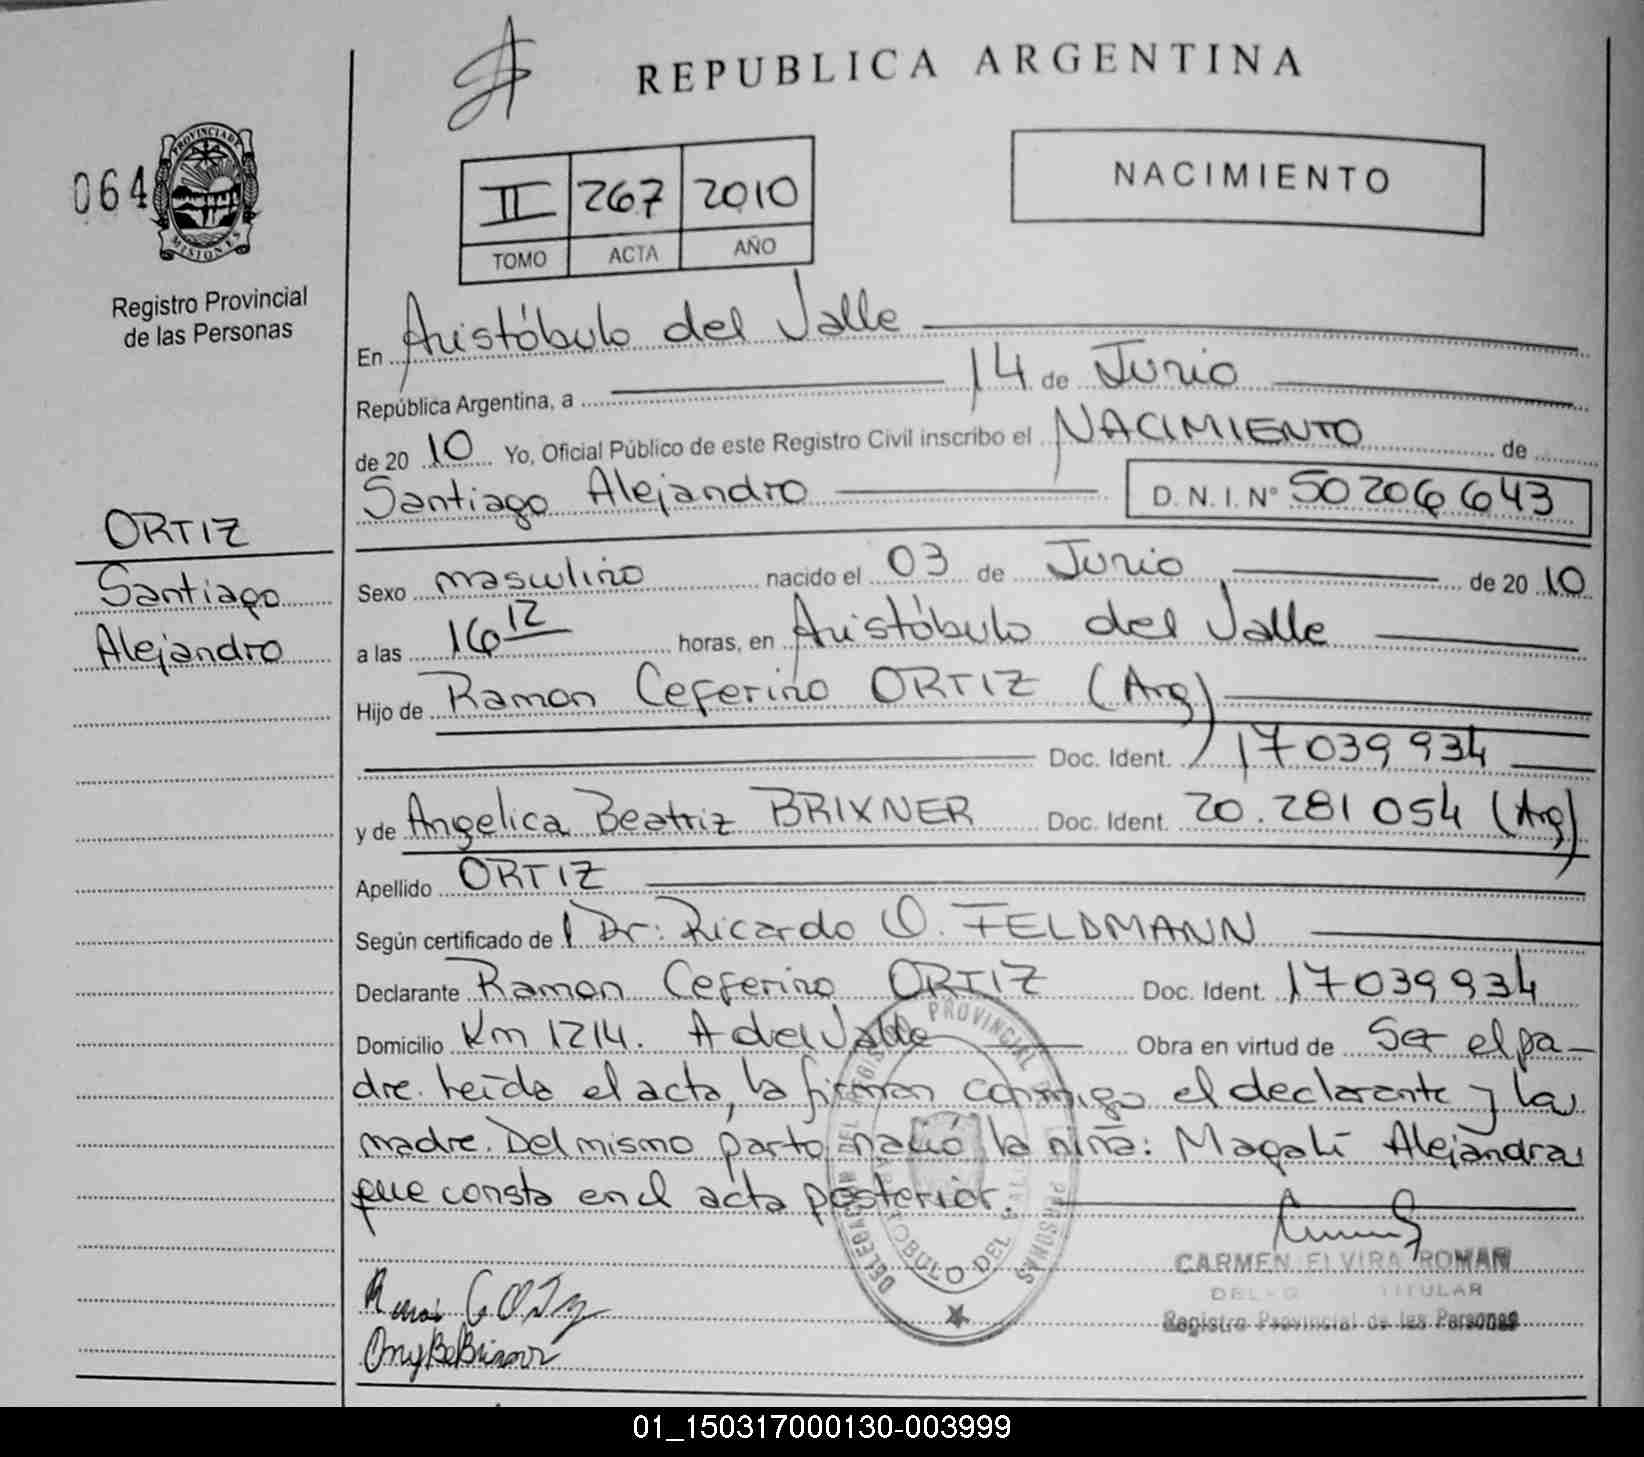 REPUBLICA ARGENTINA
064
PROVINCIA DE
MISIONES
Registro Provincial
de las Personas
II 267 2010
TOMO ACTA AÑO
NACIMIENTO
En Aristóbulo del Valle
República Argentina, a 14 de Junio
de 20 10 Yo, Oficial Público de este Registro Civil inscribo el NACIMIENTO de
Santiago Alejandro D.N.I. Nº 50206643
ORTIZ
Santiago
Alejandro
Sexo masculino nacido el 03 de Junio de 20 10
a las 16 12 horas, en Aristóbulo del Valle
Hijo de Ramon Ceferino ORTIZ (Arg)
Doc. Ident. 17039934
y de Angelica Beatriz BRIXNER Doc. Ident. 20.281054 (Arg)
Apellido ORTIZ
Según certificado de Dr: Ricardo O. FELDMANN
Declarante Ramon Ceferino ORTIZ Doc. Ident. 17039934
Domicilio Km 1214. A del Valle Obra en virtud de Ser el pa-
dre. Leída el acta, la firman conmigo el declarante y la
madre. Del mismo parto nació la niña: Magalí Alejandra
que consta en el acta posterior.
CARMEN ELVIRA ROMAN
TITULAR
Registro Provincial de las Personas
01_150317000130-003999